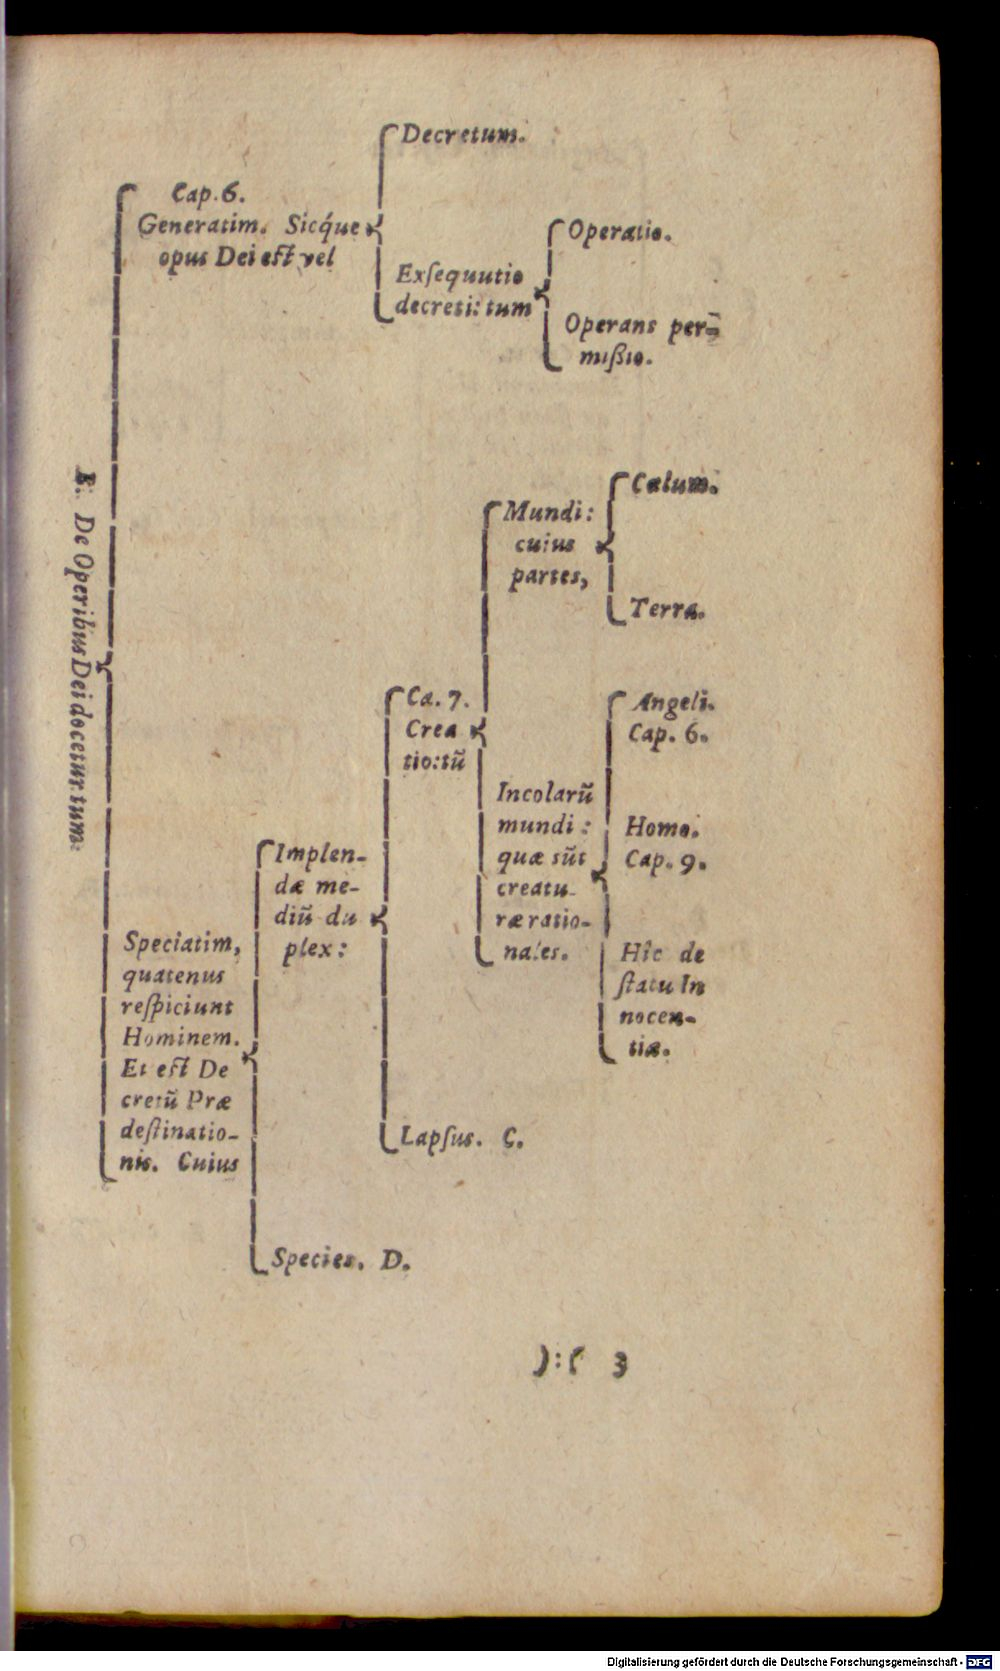 B: De Operibus Dei docetur tum:
Cap. 6.
Generatim. Sicq́ue
opus Dei est vel
Decretum.
Exſequutio
decreti: tum
Operatio.
Operans per=
mißio.
Speciatim,
quatenus
reſpiciunt
Hominem.
Et eſt De
cretũ Præ
deſtinatio-
nis. Cuius
Implen-
dæ me-
diũ du
plex:
Ca. 7.
Crea
tio: tũ
Mundi:
cuius
partes,
Cælum.
Terra.
Incolarũ
mundi:
quæ sũt
creatu-
ræ ratio-
nales.
Angeli.
Cap. 6.
Homo.
Cap. 9.
Hîc de
ſtatu In
nocen-
tiæ.
Lapſus. C.
Species. D.
):( 3
Digitalisierung gefördert durch die Deutsche Forschungsgemeinschaft - DFG